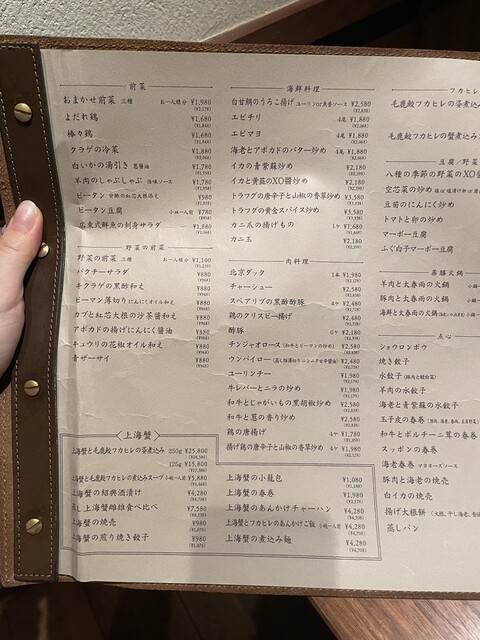 前菜
おまかせ前菜 三種 お一人様分 ¥1,980
(¥2,178)
よだれ鶏 ¥1,680
(¥1,848)
棒々鶏 ¥1,680
(¥1,848)
クラゲの冷菜 ¥1,880
(¥2,068)
白いかの湯引き 葱醤油 ¥1,780
(¥1,958)
羊肉のしゃぶしゃぶ 怪味ソース ¥1,780
(¥1,958)
ピータン 甘酢の紅芯大根添え ¥980
(¥1,078)
ピータン豆腐 小鉢一人前 ¥780
(¥858)
広東式鮮魚の刺身サラダ ¥1,880
野菜の前菜
野菜の前菜 三種 お一人様 ¥1,100
(¥1,210)
パクチーサラダ ¥880
(¥968)
キクラゲの黒酢和え ¥880
(¥968)
ピーマン薄切りにんにくオイル和え ¥880
(¥968)
カブと紅芯大根の沙茶醤和え ¥880
(¥968)
アボカドの揚げにんにく醤油 ¥480
キュウリの花椒オイル和え ¥880
(¥968)
青ザーサイ ¥880
(¥968)
海鮮料理
白甘鯛のうろこ揚げ ユーリンor魚香ソース ¥2,580
エビチリ 4尾 ¥1,880
(¥2,068)
エビマヨ 4尾 ¥1,880
(¥2,068)
海老とアボカドのバター炒め 4尾 ¥1,880
(¥2,068)
イカの青紫蘇炒め ¥2,180
(¥2,398)
イカと黄韮のXO醤炒め ¥2,180
(¥2,398)
トラフグの唐辛子と山椒の香草炒め ¥3,580
トラフグの黄金スパイス炒め ¥3,580
カニ爪の揚げもの 1ケ ¥1,680
カニ玉 ¥2,180
肉料理
北京ダック 1本 ¥1,980
(¥2,178)
チャーシュー ¥2,580
スペアリブの黒酢酢豚 4ケ ¥2,480
(¥2,728)
鶏のクリスピー揚げ ¥2,480
(¥2,728)
酢豚 6ケ ¥2,180
チンジャオロース (和牛とピーマンの炒め) ¥2,580
ウンパイロー (蒸し指薄切りニンニク甘辛醤油) ¥2,480
ユーリンチー ¥1,980
(¥2,178)
牛レバーとニラの炒め ¥1,980
(¥2,178)
和牛とじゃがいもの黒胡椒炒め ¥2,580
和牛と葱の香り炒め ¥2,580
鶏の唐揚げ 4ケ ¥1,780
(¥1,958)
揚げ鶏の唐辛子と山椒の香草炒め 4ケ ¥1,980
(¥2,178)
フカヒレ
毛鹿鮫フカヒレの姿煮込
毛鹿鮫フカヒレの蟹煮込み
豆腐/野菜
八種の季節の野菜のXO醤
空芯菜の炒め
豆苗のにんにく炒め
トマトと卵の炒め
マーボー豆腐
ふぐ白子マーボー豆腐
薬膳火鍋
羊肉と太春雨の火鍋 小鍋
豚肉と太春雨の火鍋 小鍋
海鮮と太春雨の火鍋
点心
ショウロンポウ
焼き餃子
水餃子 (豚肉と鮮白菜)
羊肉の水餃子
海老と青紫蘇の水餃子
玉子皮の春巻
和牛とポルチーニ茸の春巻
スッポンの春巻
海老春巻 マヨネーズソース
豚肉と海老の焼売
白イカの焼売
揚げ大根餅 (大根、干し海老、
蒸しパン
上海蟹
上海蟹と毛鹿鮫フカヒレの姿煮込み 250g ¥25,800
125g ¥15,800
上海蟹と毛鹿鮫フカヒレの煮込みスープ 小鉢一人前 ¥5,880
上海蟹の紹興酒漬け ¥4,280
蒸し上海蟹雌雄食べ比べ ¥7,580
上海蟹の焼売 ¥980
(¥1,078)
上海蟹の煎り焼き餃子 ¥980
(¥1,078)
上海蟹の小籠包 ¥1,080
(¥1,188)
上海蟹の春巻 ¥1,980
(¥2,178)
上海蟹のあんかけチャーハン ¥4,280
(¥4,708)
上海蟹とフカヒレのあんかけご飯 小碗一人前 ¥4,280
(¥4,708)
上海蟹の煮込み麺 ¥4,280
(¥4,708)